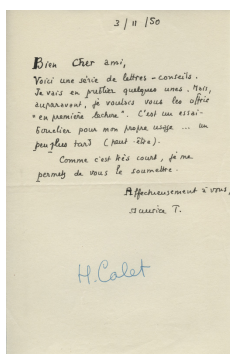 3/11/50
Bien Cher ami,
Voici une série de lettres-conseils.
Je vais en publier quelques unes. Mais,
auparavant, je voulais vous les offrir
"en première lecture". C'est un essai-
bouclier pour mon propre usage ... un
peu plus tard (peut-être).
Comme c'est très court, je me
permets de vous le soumettre.
Affectueusement à vous,
Maurice T.
H. Calet